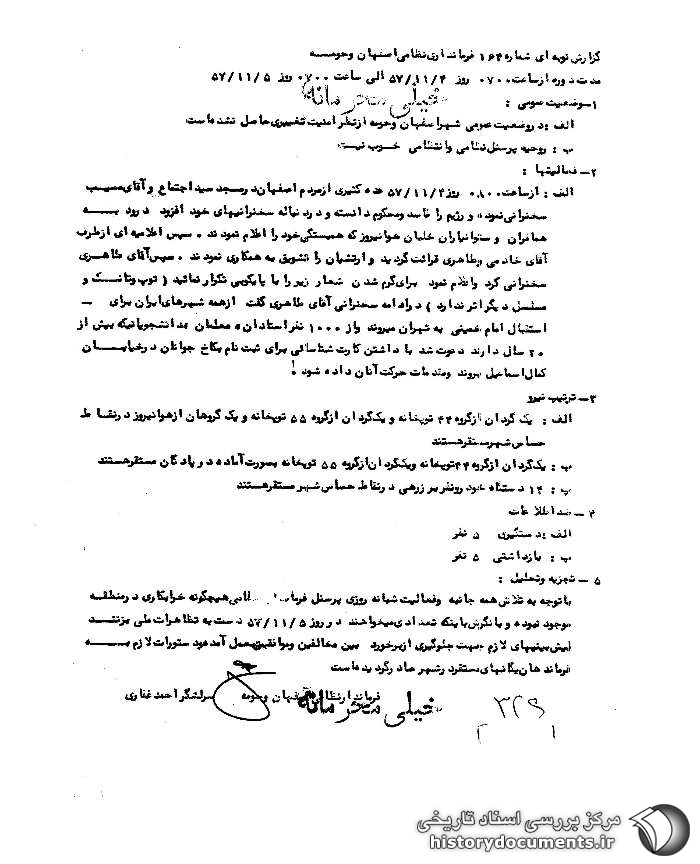 گزارش نوبه ای شماره ۱۶۴ فرمانداری نظامی اصفهان وحومه
مدت دوره ازساعت ۰۷۰۰ روز ۵۷/۱۱/۴ الی ساعت ۰۷۰۰ روز ۵۷/۱۱/۵
خیلی محرمانه
۱-وضعیت عمومی :
الف : دروضعیت عمومی شهراصفهان وحومه ازنظرامنیت تغییری حاصل نشده است
ب : روحیه پرسنل نظامی وانتظامی خوب نیست
۲- فعالیتها :
الف : ازساعت ۰۸۰۰ روز ۵۷/۱۱/۴ عده کثیری ازمردم اصفهان در مسجد سید اجتماع و آقای
سخنرانی نموده و رژیم را فاسد ومحکوم دانسته و در دنباله سخنرانیهای خود افزود درود به
همافران و ستوانیاران خلبان هوانیروز که همبستگی خود را اعلام نمودند . سپس اعلامیه ای ازطرف
آقای خادمی وطاهری قرائت گردید و ارتشیان را تشویق به همکاری نمودند . سپس آقای طاهری
سخنرانی کرد واعلام نمود برای گرم شدن شعار زیر را با پایکوبی تکرار نمائید ( توپ وتانک و
مسلسل دیگر اثر ندارد ) درادامه سخنرانی آقای طاهری گفت ازهمه شهرهای ایران برای
استقبال امام خمینی به تهران میروند واز ۱۰۰۰ نفر استادان ، معلمان ودانشجویانیکه بیش از
۲۰ سال دارند دعوت شد با داشتن کارت شناسائی برای ثبت نام بکاخ جوانان درخیابان
کمال اسماعیل بروند ومقدمات حرکت آنان داده شود !
۳- ترتیب نیرو
الف : یک گردان ازگروه ۴۴ توپخانه و یک گردان ازگروه ۵۵ توپخانه و یک گروهان ازهوانیروز درنقاط
حساس شهر مستقرهستند
ب : یک گردان ازگروه ۴۴ توپخانه ویک گردان ازگروه ۵۵ توپخانه بصورت آماده در پادگان مستقرهستند
پ : ۱۴ دستگاه خودرو نفربر زرهی درنقاط حساس شهر مستقرهستند
۴ - ضد اطلاعات
الف : دستگیری ۵ نفر
ب : بازداشتی ۵ نفر
۵ - تجزیه وتحلیل :
باتوجه به تلاش همه جانبه وفعالیت شبانه روزی پرسنل هیچگونه خرابکاری درمنطقه
موجود نبوده و بانگرش باینکه تعدادی میخواهند در روز ۵۷/۱۱/۵ دست به تظاهرات ملی بزنند
پیش بینیهای لازم جهت جلوگیری ازبرخورد بین مخالفین وموافقین بعمل آمده و دستورات لازم به
فرماندهان یگانهای مستقر درشهر صادرگردیده است
فرماندارنظامی اصفهان وحومه سرلشگر احمد غفاری
خیلی محرمانه
۳۲۹
۱
۲
مرکز بررسی اسناد تاریخی
historydocuments.ir